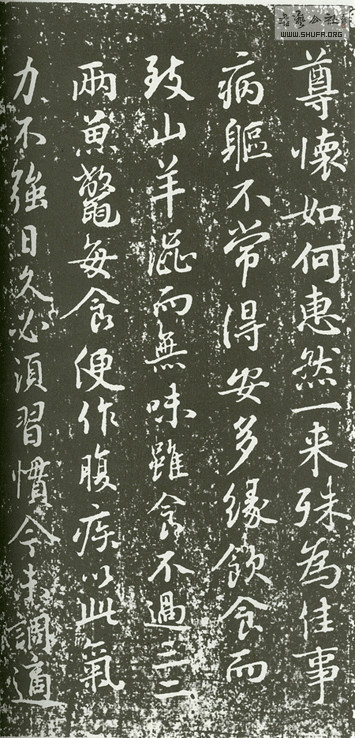 尊懷如何惠然一来殊為佳事
病軀不常得安多緣飲食而
致山羊澁而無味雖食不過三二
兩魚鼈每食便作腹疾以此氣
力不強日久必須習慣今未調適
公社
WWW.SHUFA.ORG